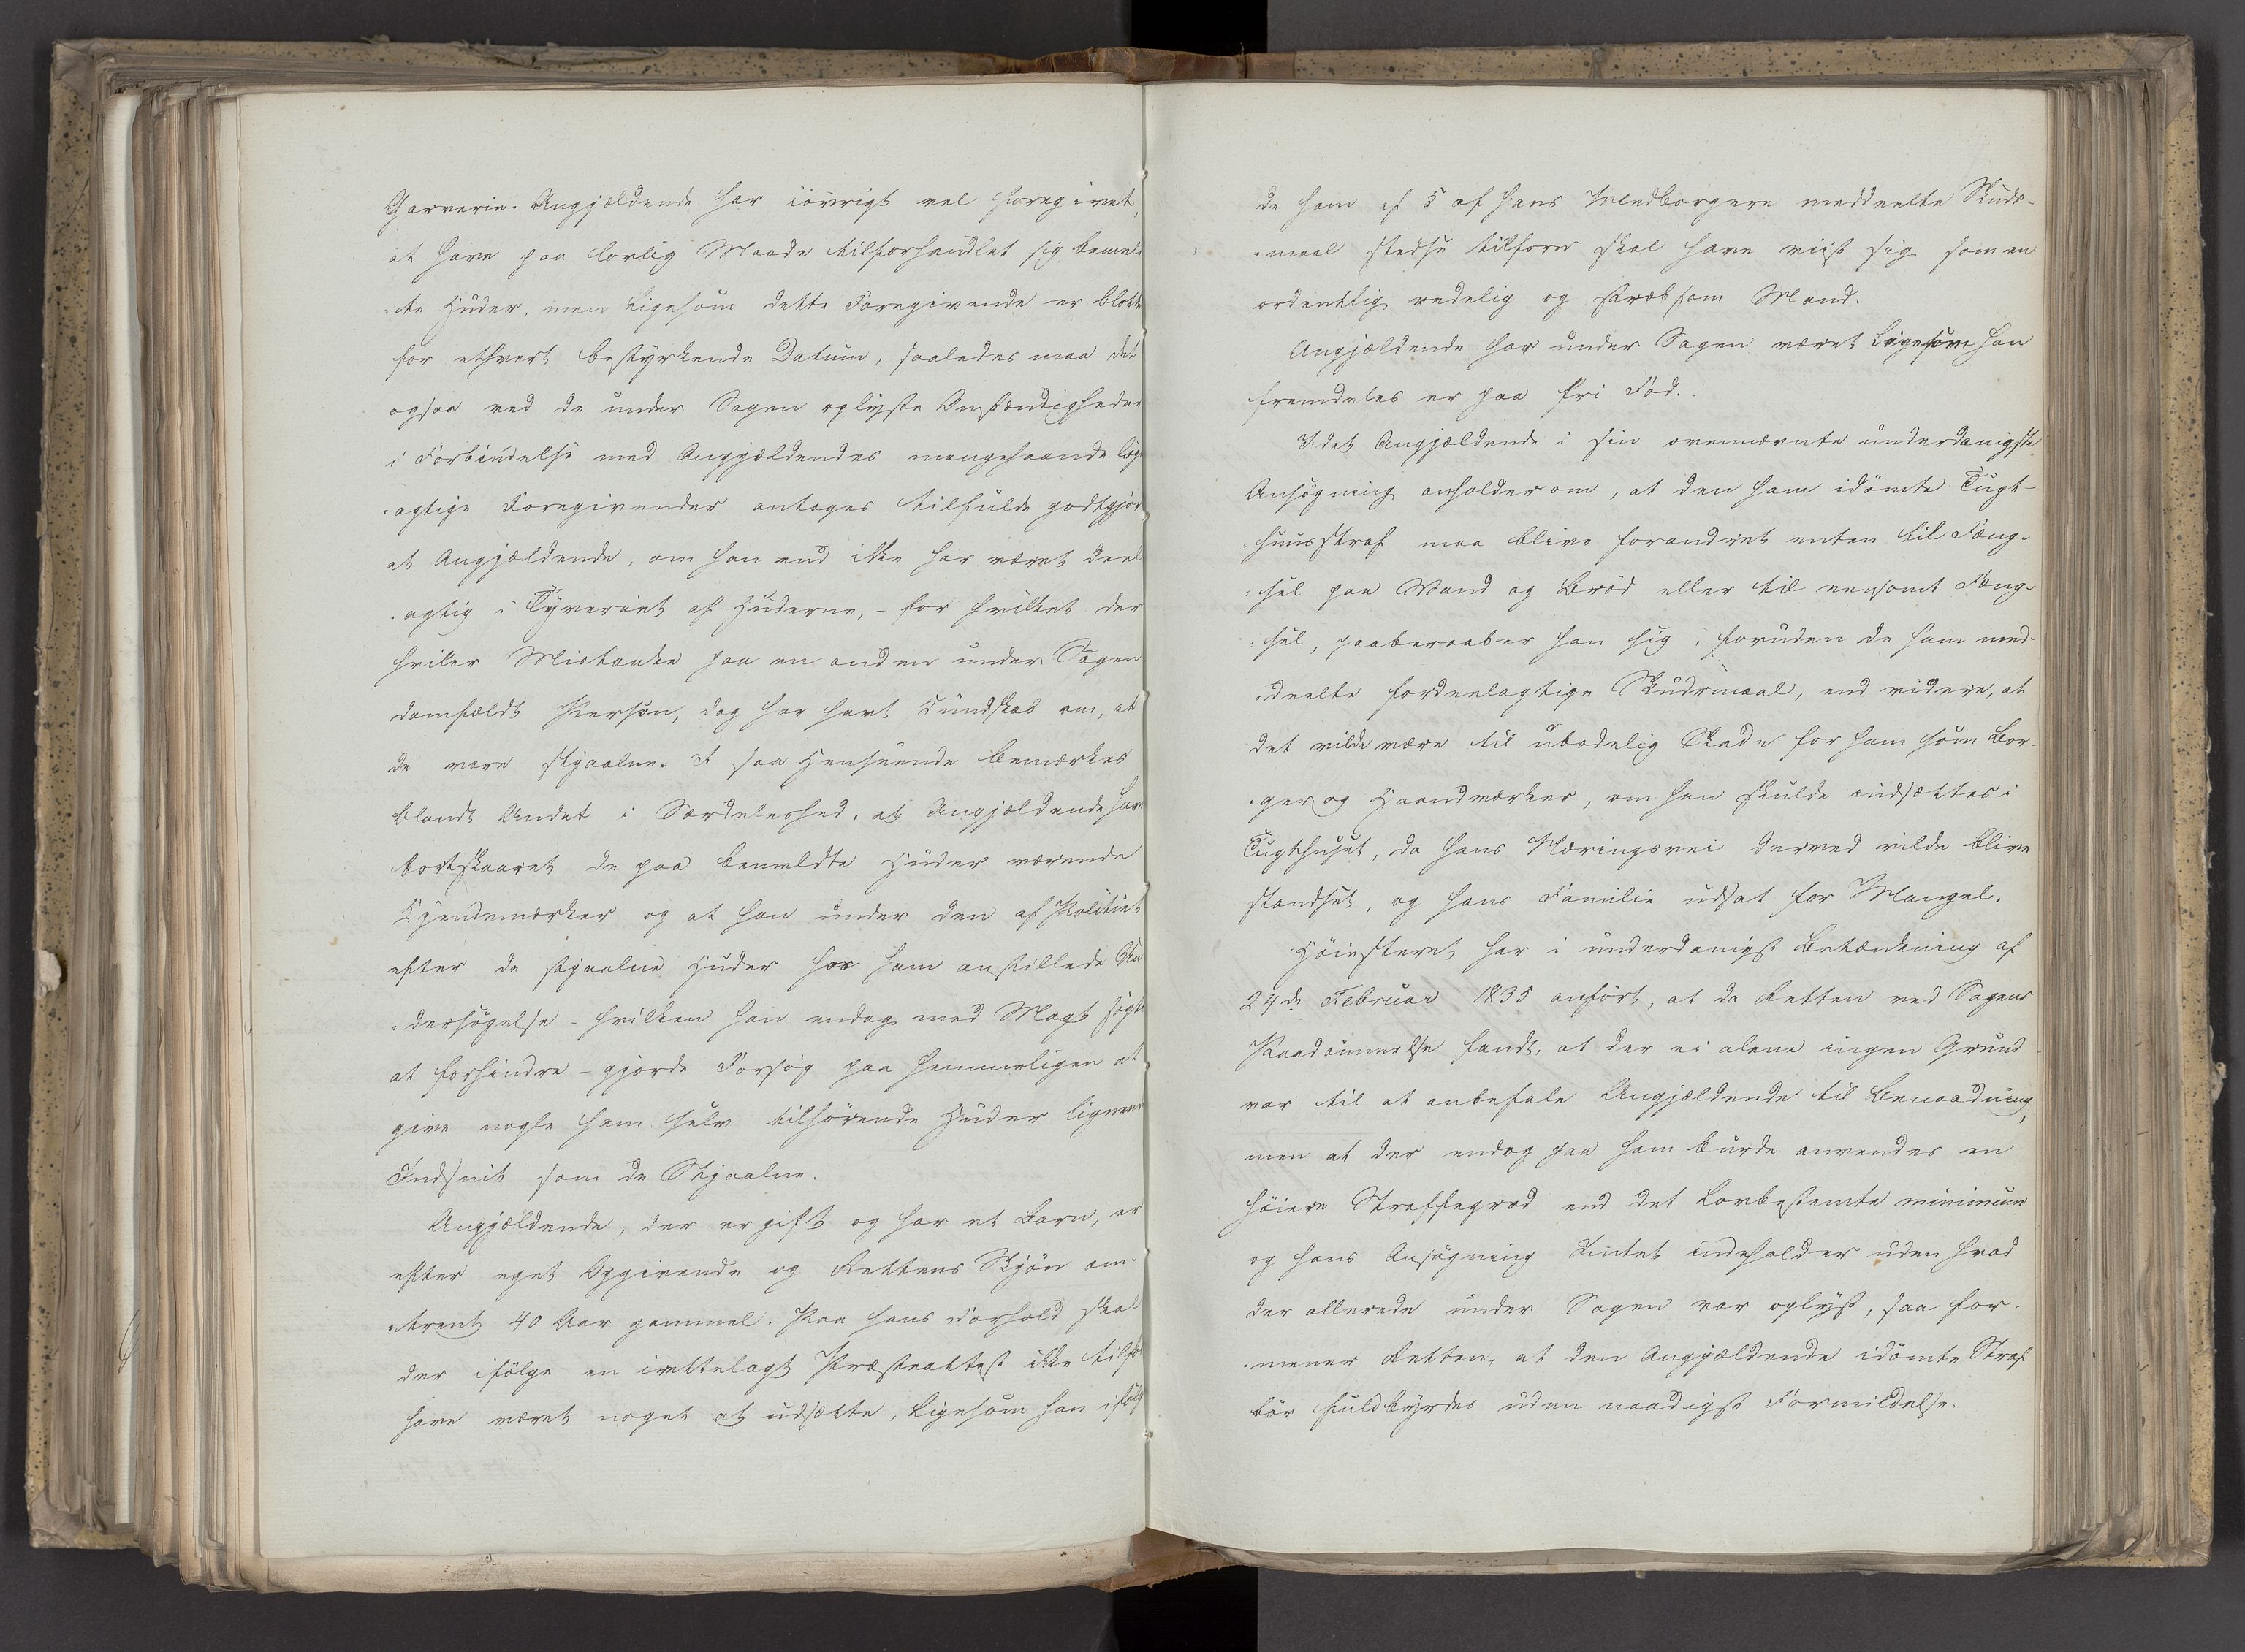 Garverie. Angjældende har iövrigt vel foregivet,
at have paa lovlig Maade tilforhandlet sig bemeld
te Huder, men ligesom dette Foregivende er blottet
for ethvert bestyrkende Datum, saaledes maa det
ogsaa ved de under Sagen oplyste Omstændigheder
i Forbindelse med Angjældendes mangehaande løgn
agtige Foregivender antages tilfulde godtgjort
at Angjældende, om han end ikke har været deel
agtig i Tyveriet af Huderne, - for hvilket der
hviler Mistanke paa en anden under Sagen
domfældt Person, dog har havt Kundskab om, at
de vare stjaalne. I saa Henseende bemærkes
blandt Andet i Særdeleshed, at Angjældende har
bortskaaret de paa bemeldte Huder værende
Kjendemærker og at han under den af Politiet
efter de stjaalne Huder hos ham anstillede Un
dersögelse - hvilken han endog med Magt søgte
at forhindre - gjorde Forsög paa hemmeligen at
give nogle ham selv tilhörende Huder lignende
Indsnit som de Stjaalne.
Angjældende, der er gift og har et Barn, er
efter eget Opgivende og Rettens Skjön om-
trent 40 Aar gammel. Paa hans Forhold skal
der ifölge en irettelagt Præsteattest ikke tilforn
have været noget at udsætte, ligesom han ifölge
de ham af 5 af hans Medborgere meddeelte Skuds-
maal stedse tilforn skal have viist sig som en
ordentlig redelig og stræbsom Mand.
Angjældende har under Sagen været ligesom han
fremdeles er paa fri Fod.
Idet Angjældende i sin ovennævnte underdanigste
Ansögning anholder om, at den ham idömte Tugt-
huusstraf maa blive forandret enten til Fæng-
sel paa Vand og Bröd eller til eensomt Fæng-
sel, paaberaaber han sig, foruden de ham med-
deelte fordeelagtige Skudsmaal, end videre, at
det vilde være til ubodelig Skade for ham som Bor-
ger og Haandværker, om han skulde indsættes i
Tugthuset, da hans Næringsvei derved vilde blive
standset, og hans Familie udsat for Mangel.
Höiesteret har i underdanigst Betænkning af
24de Februar 1835 anfört, at da Retten ved Sagens
Paadömmelse fandt, at der ei alene ingen Grund
var til at anbefale Angjældende til Benaadning,
men at der endog paa ham burde anvendes en
höiere Straffegrad end det lovbestemte minimum
og hans Ansögning Intet indeholder uden hvad
der allerede under Sagen var oplyst, saa for-
mener Retten, at den Angjældende idömte Straf
bör fuldbyrdes uden naadigst Formildelse.